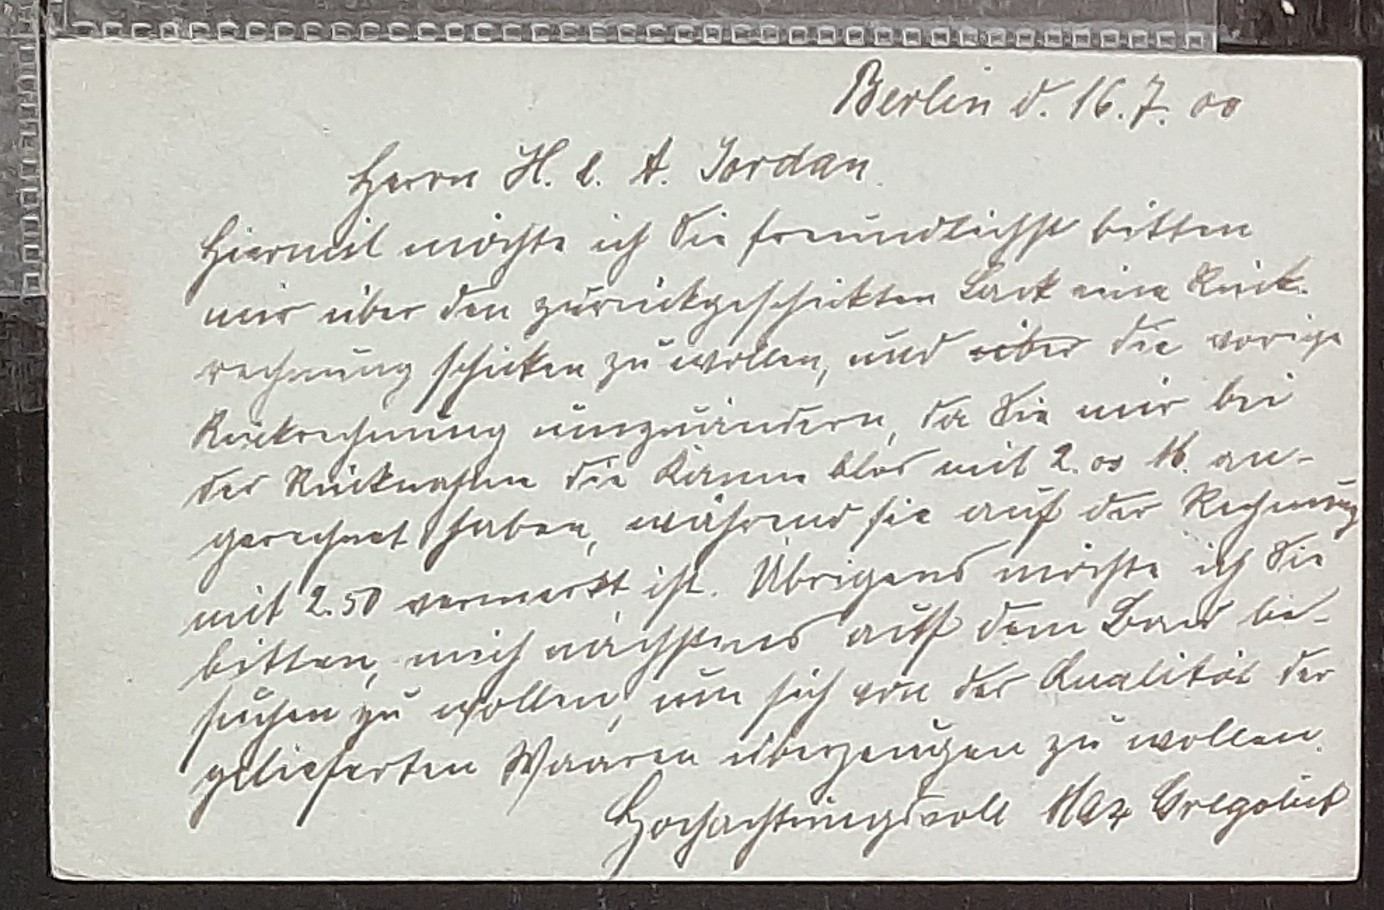 Berlin d. 16.7.00
Herrn H. & A. Jordan.
Hiermit möchte ich Sie freundlichst bitten
mir über den zurückgeschickten Lack eine Rück-
rechnung schicken zu wollen, und die vorige
Rückrechnung umzuändern, da Sie mir bei
der Rücknahme die Kanne blos mit 2.00 M. an-
gerechnet haben, während sie auf der Rechnung
mit 2.50 vermerkt ist. Übrigens möchte ich Sie
bitten, mich nächstens auf dem Bau be-
suchen zu wollen, um sich von der Qualität der
gelieferten Waaren überzeugen zu wollen.
Hochachtungsvoll Max